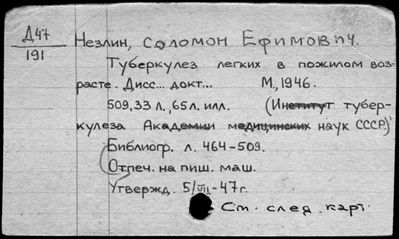 Д47
191
Незлин, Соломон Ефимович.
Туберкулез легких в пожилом воз-
расте. Дисс... докт... М., 1946.
509,33 л., 65 л. илл. (Институт тубер-
кулеза Академии медицинских наук СССР)
Библиогр. л. 464-509.
(Отпеч. на пиш. маш.
Утвержд. 5/VII-47г.
См. след. карт.